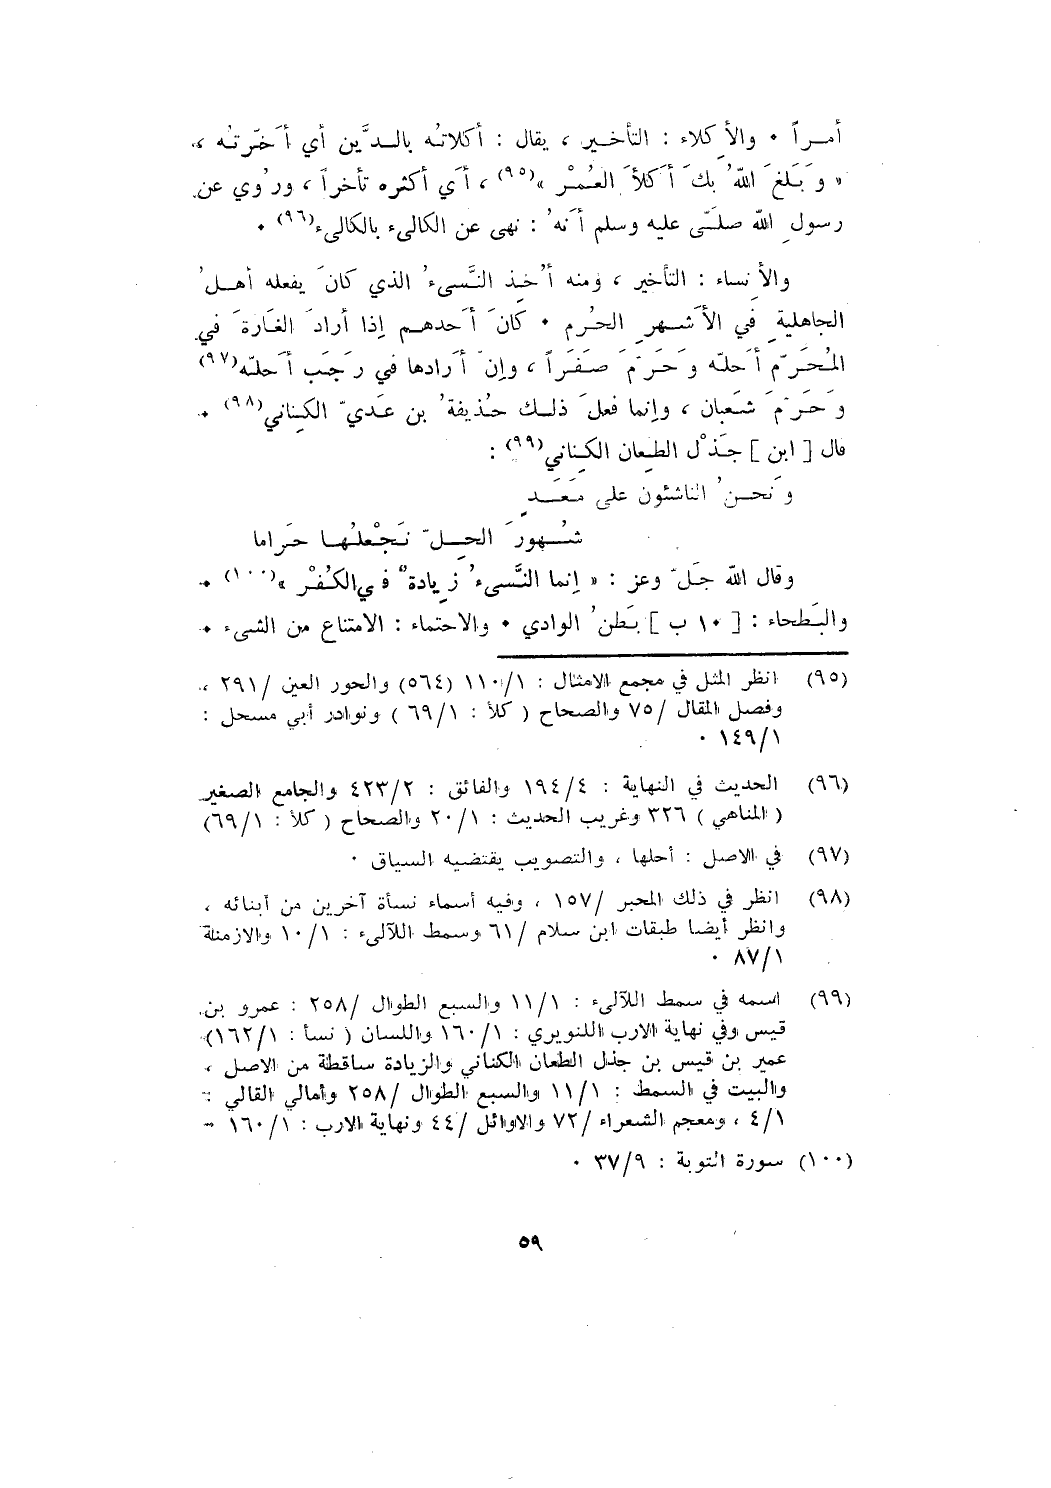 أمراً • والأِكلاء : التأخير ، يقال : أكلاتُه بالدَّين أي أَخّرتُه ،
« وَبَلغَ اللهُ بكَ أَكَلأَ العُمْر »(٩٥) ، أَي أكثره تأخراً ، ورُوي عن
رسولِ الله صلَّى عليه وسلم أَنهُ : نهى عن الكالىء بالكالىء(٩٦) •
والأِنساء : التأخير ، ومنه أُخِذ النَّسيءُ الذي كانَ يفعله أهلُ
الجاهليةِ في الأَشهرِ الحُرم • كانَ أَحدهم إذا أرادَ الغَارةَ في
المُحَرّمِ أَحلّه وَحَرّمَ صَفَراً ، وإنْ أَرادها في رَجَب أَحلّه(٩٧)
وَحَرّمَ شَعبان ، وإنما فعلَ ذلك حُذيفةُ بن عَديّ الكِناني(٩٨) •
قال [ ابن ] جَذْل الطِعان الكِناني(٩٩) :
وَنحنُ الناسِئون على مَعَدٍ
شُهورَ الحِلّ نَجْعلُها حَراما
وقال الله جَلّ وعز : « إنما النَّسيءُ زِيادةٌ في الكُفْرِ »(١٠٠) •
والبَطحاء : [ ١٠ ب ] بَطنُ الوادي • والاحتماء : الامتناع من الشيء •
(٩٥) انظر المثل في مجمع الامثال : ١/١١٠ (٥٦٤) والحور العين /٢٩١ ،
وفصل المقال /٧٥ والصحاح ( كلأ : ١/٦٩ ) ونوادر أبي مسحل :
١/١٤٩ •
(٩٦) الحديث في النهاية : ٤/١٩٤ والفائق : ٢/٤٢٣ والجامع الصغير
( المناهي ) ٣٢٦ وغريب الحديث : ١/٢٠ والصحاح ( كلأ : ١/٦٩)
(٩٧) في الاصل : أحلها ، والتصويب يقتضيه السياق •
(٩٨) انظر في ذلك المحبر /١٥٧ ، وفيه أسماء نسأة آخرين من أبنائه ،
وانظر أيضا طبقات ابن سلام /٦١ وسمط اللآلىء : ١/١٠ والازمنة
١/٨٧ •
(٩٩) اسمه في سمط اللآلىء : ١/١١ والسبع الطوال /٢٥٨ : عمرو بن
قيس وفي نهاية الارب للنويري : ١/١٦٠ واللسان ( نسأ : ١/١٦٢)
عمير بن قيس بن جذل الطعان الكناني والزيادة ساقطة من الاصل ،
والبيت في السمط : ١/١١ والسبع الطوال /٢٥٨ وأمالي القالي :
١/٤ ، ومعجم الشعراء /٧٢ والاوائل /٤٤ ونهاية الارب : ١/١٦٠ •
(١٠٠) سورة التوبة : ٩/٣٧ •
٥٩